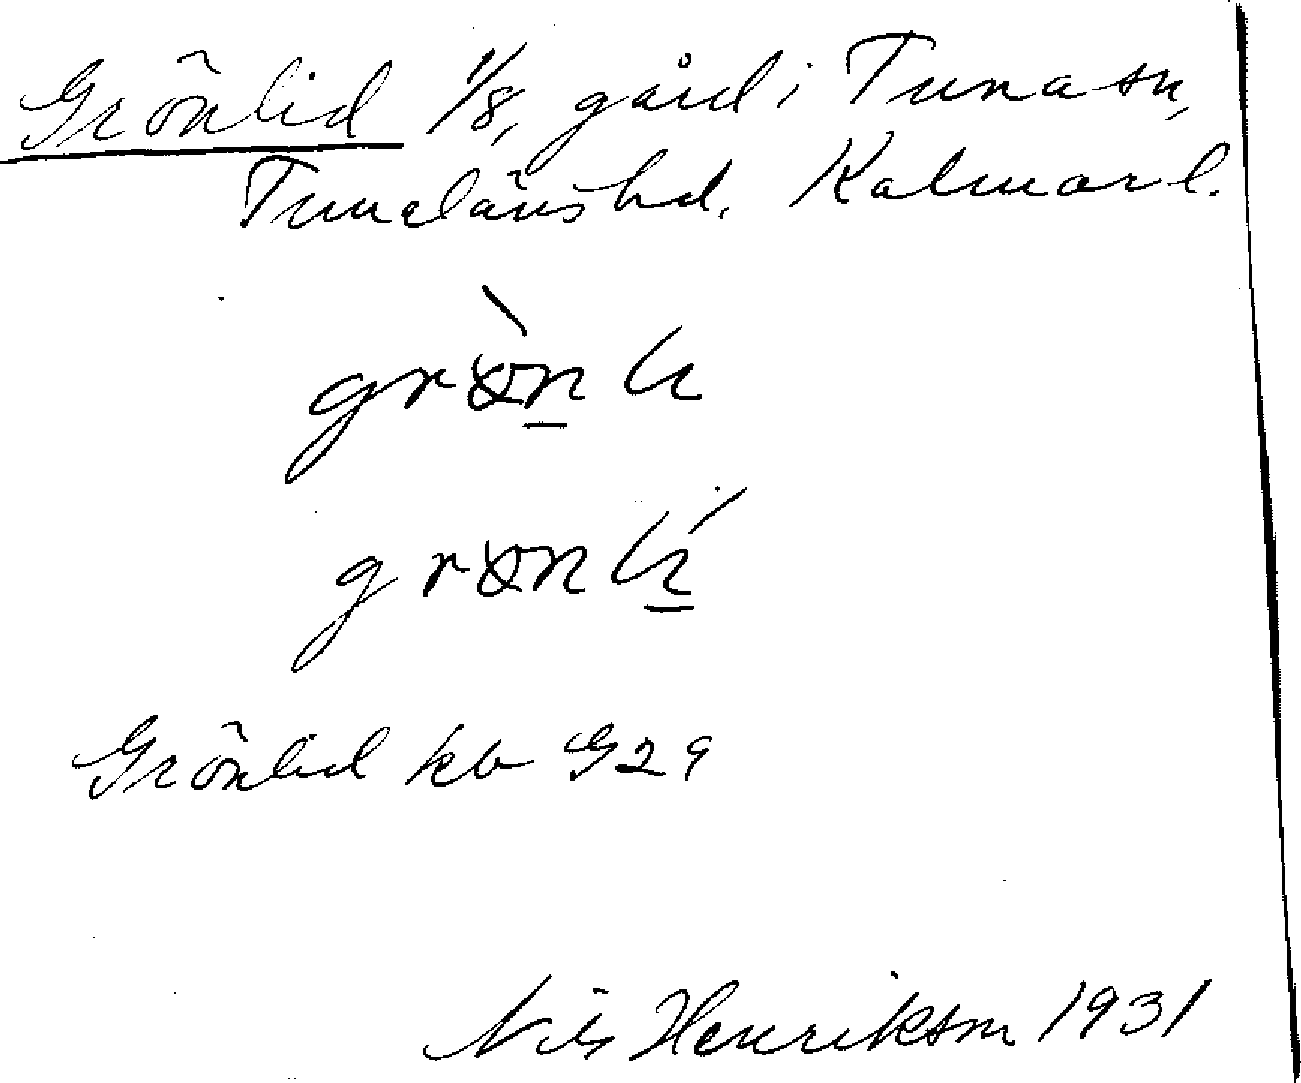 Grönlid 1/8, gård i Tuna sn,
Tunaläns hd. Kalmar l.
grö̀n li
grön lí
Grönlid kb G29
Nils Henrikson 1931